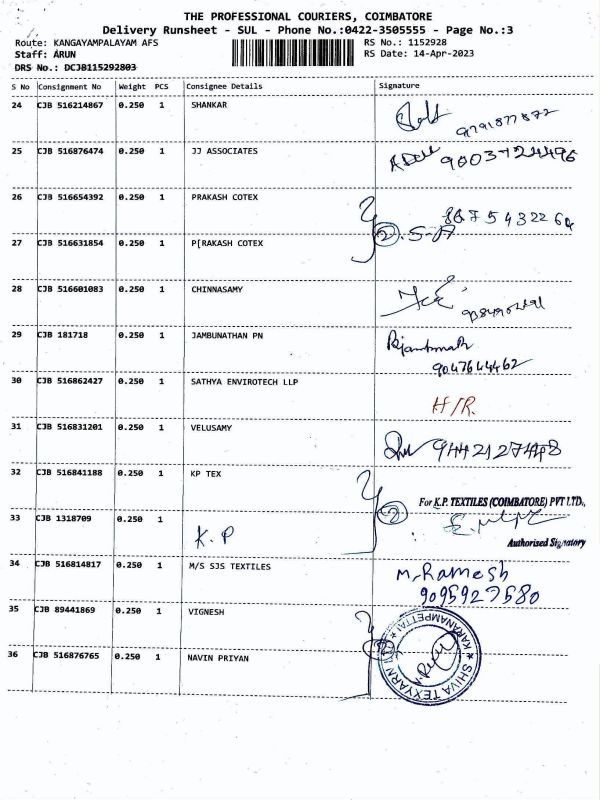 THE PROFESSIONAL COURIERS, COIMBATORE
Delivery Runsheet - SUL - Phone No.:0422-3505555 - Page No.:3
Route: KANGAYAMPALAYAM AFS RS No.: 1152928
Staff: ARUN RS Date: 14-Apr-2023
DRS No.: DCJB115292803
S No Consignment No Weight PCS Consignee Details Signature
24 CJB 516214867 0.250 1 SHANKAR
9791877872
25 CJB 516876474 0.250 1 JJ ASSOCIATES
9003724496
26 CJB 516654392 0.250 1 PRAKASH COTEX
8875432264
2
27 CJB 516631854 0.250 1 P[RAKASH COTEX
28 CJB 516601083 0.250 1 CHINNASAMY
29 CJB 181718 0.250 1 JAMBUNATHAN PN
9047644462
30 CJB 516862427 0.250 1 SATHYA ENVIROTECH LLP
H/R.
31 CJB 516831201 0.250 1 VELUSAMY
32 CJB 516841188 0.250 1 KP TEX
For K.P. TEXTILES (COIMBATORE) PVT LTD.,
2
33 CJB 1318709 0.250 1
K.P
Authorised Signatory
34 CJB 516814817 0.250 1 M/S SJS TEXTILES
M.Ramesh
9095927580
35 CJB 89441869 0.250 1 VIGNESH
36 CJB 516876765 0.250 1 NAVIN PRIYAN
KARANAMPETTAI
SHIVA TEXYARN